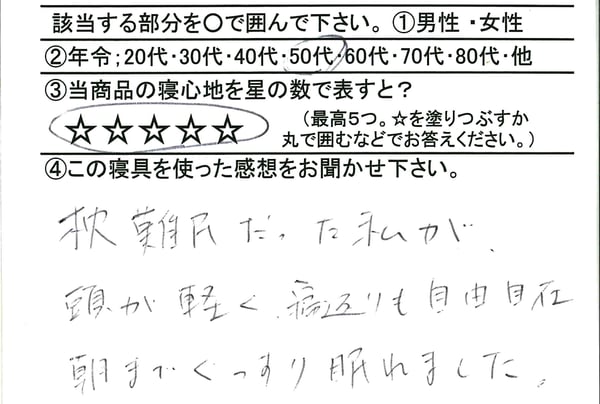 該当する部分を〇で囲んで下さい。 ①男性・女性
②年令;20代・30代・40代・50代・60代・70代・80代・他
③当商品の寝心地を星の数で表すと?
☆☆☆☆☆ (最高5つ。☆を塗りつぶすか
丸で囲むなどでお答えください。)
④この寝具を使った感想をお聞かせ下さい。
枕難民だった私が、
頭が軽く、寝返りも自由自在
朝までぐっすり眠れました。